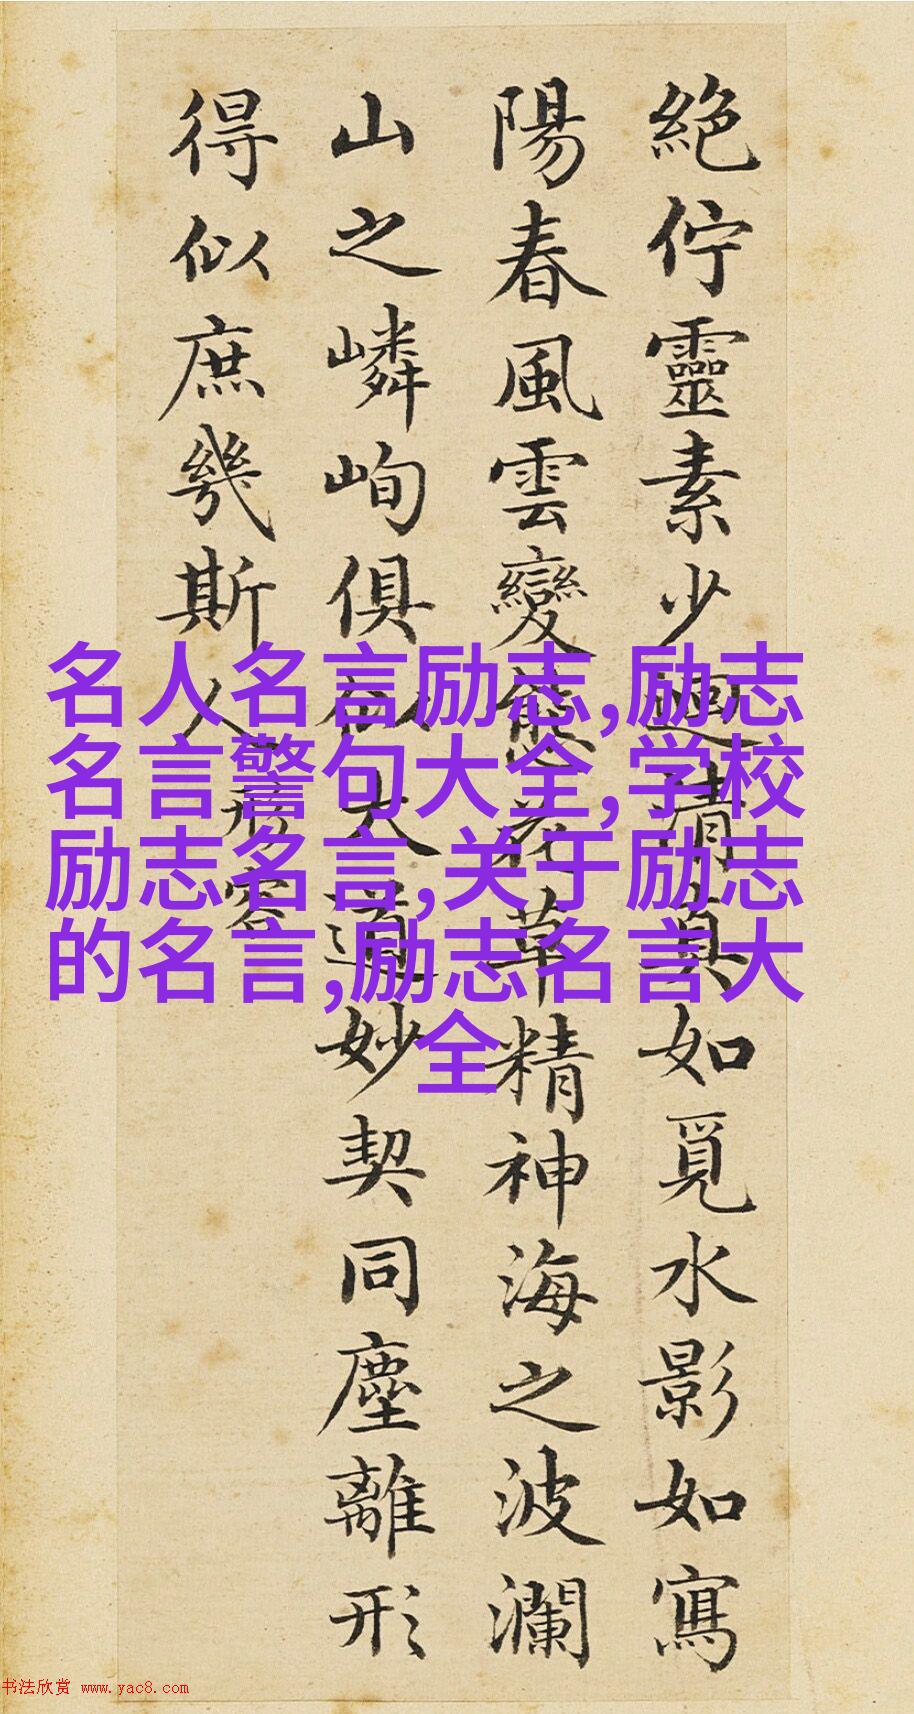 絶佇靈素少迴清真如覓水影如寫
陽春風雲變態花草精神海之波瀾
山之嶙峋俱似大道妙契同塵離形
得似庶幾斯人
形容
名人名言励志,励志
名言警句大全,学校
励志名言,关于励志
的名言,励志名言大
全
书法欣赏 www.yac8.com